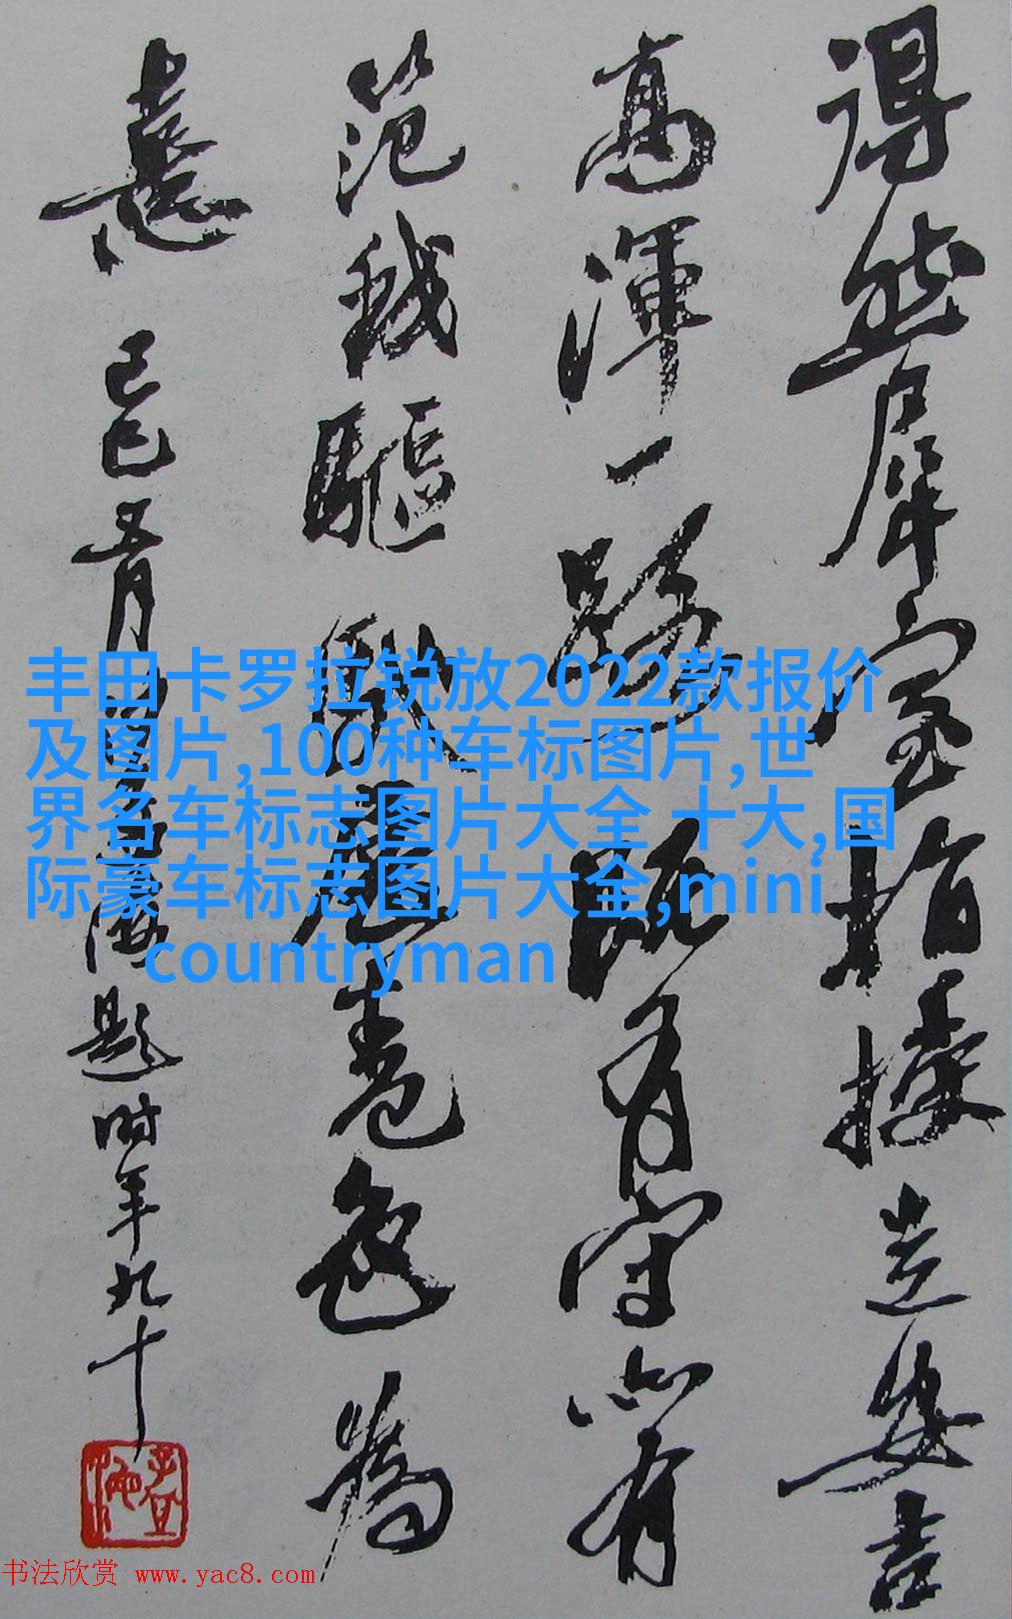 得室指授造安吉
高渾一路既有守亦有
範我驅馳展卷色為
憙
己巳五月海題时年九十
丰田卡罗拉锐放2022款报价
及图片,100种车标图片,世
界名车标志图片大全 十大,国
际豪车标志图片大全,mini
countryman
书法欣赏 www.yac8.com